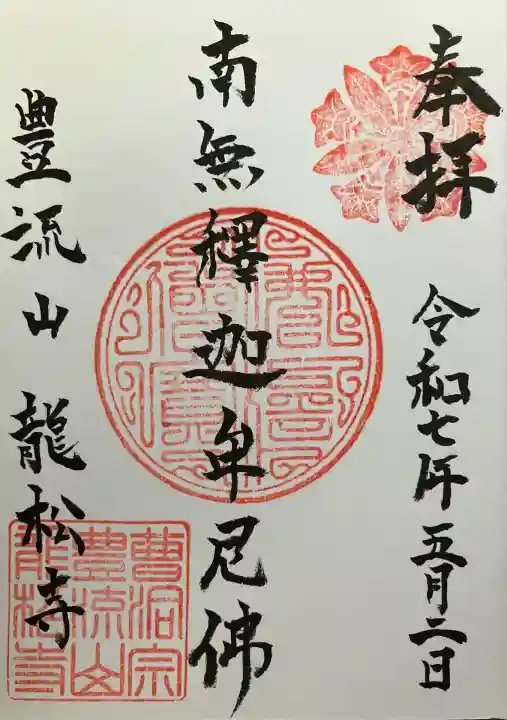 奉拝
令和七年五月二日
南無釋迦牟尼佛
豊流山 龍松寺
曹洞宗
豊流山
龍松寺